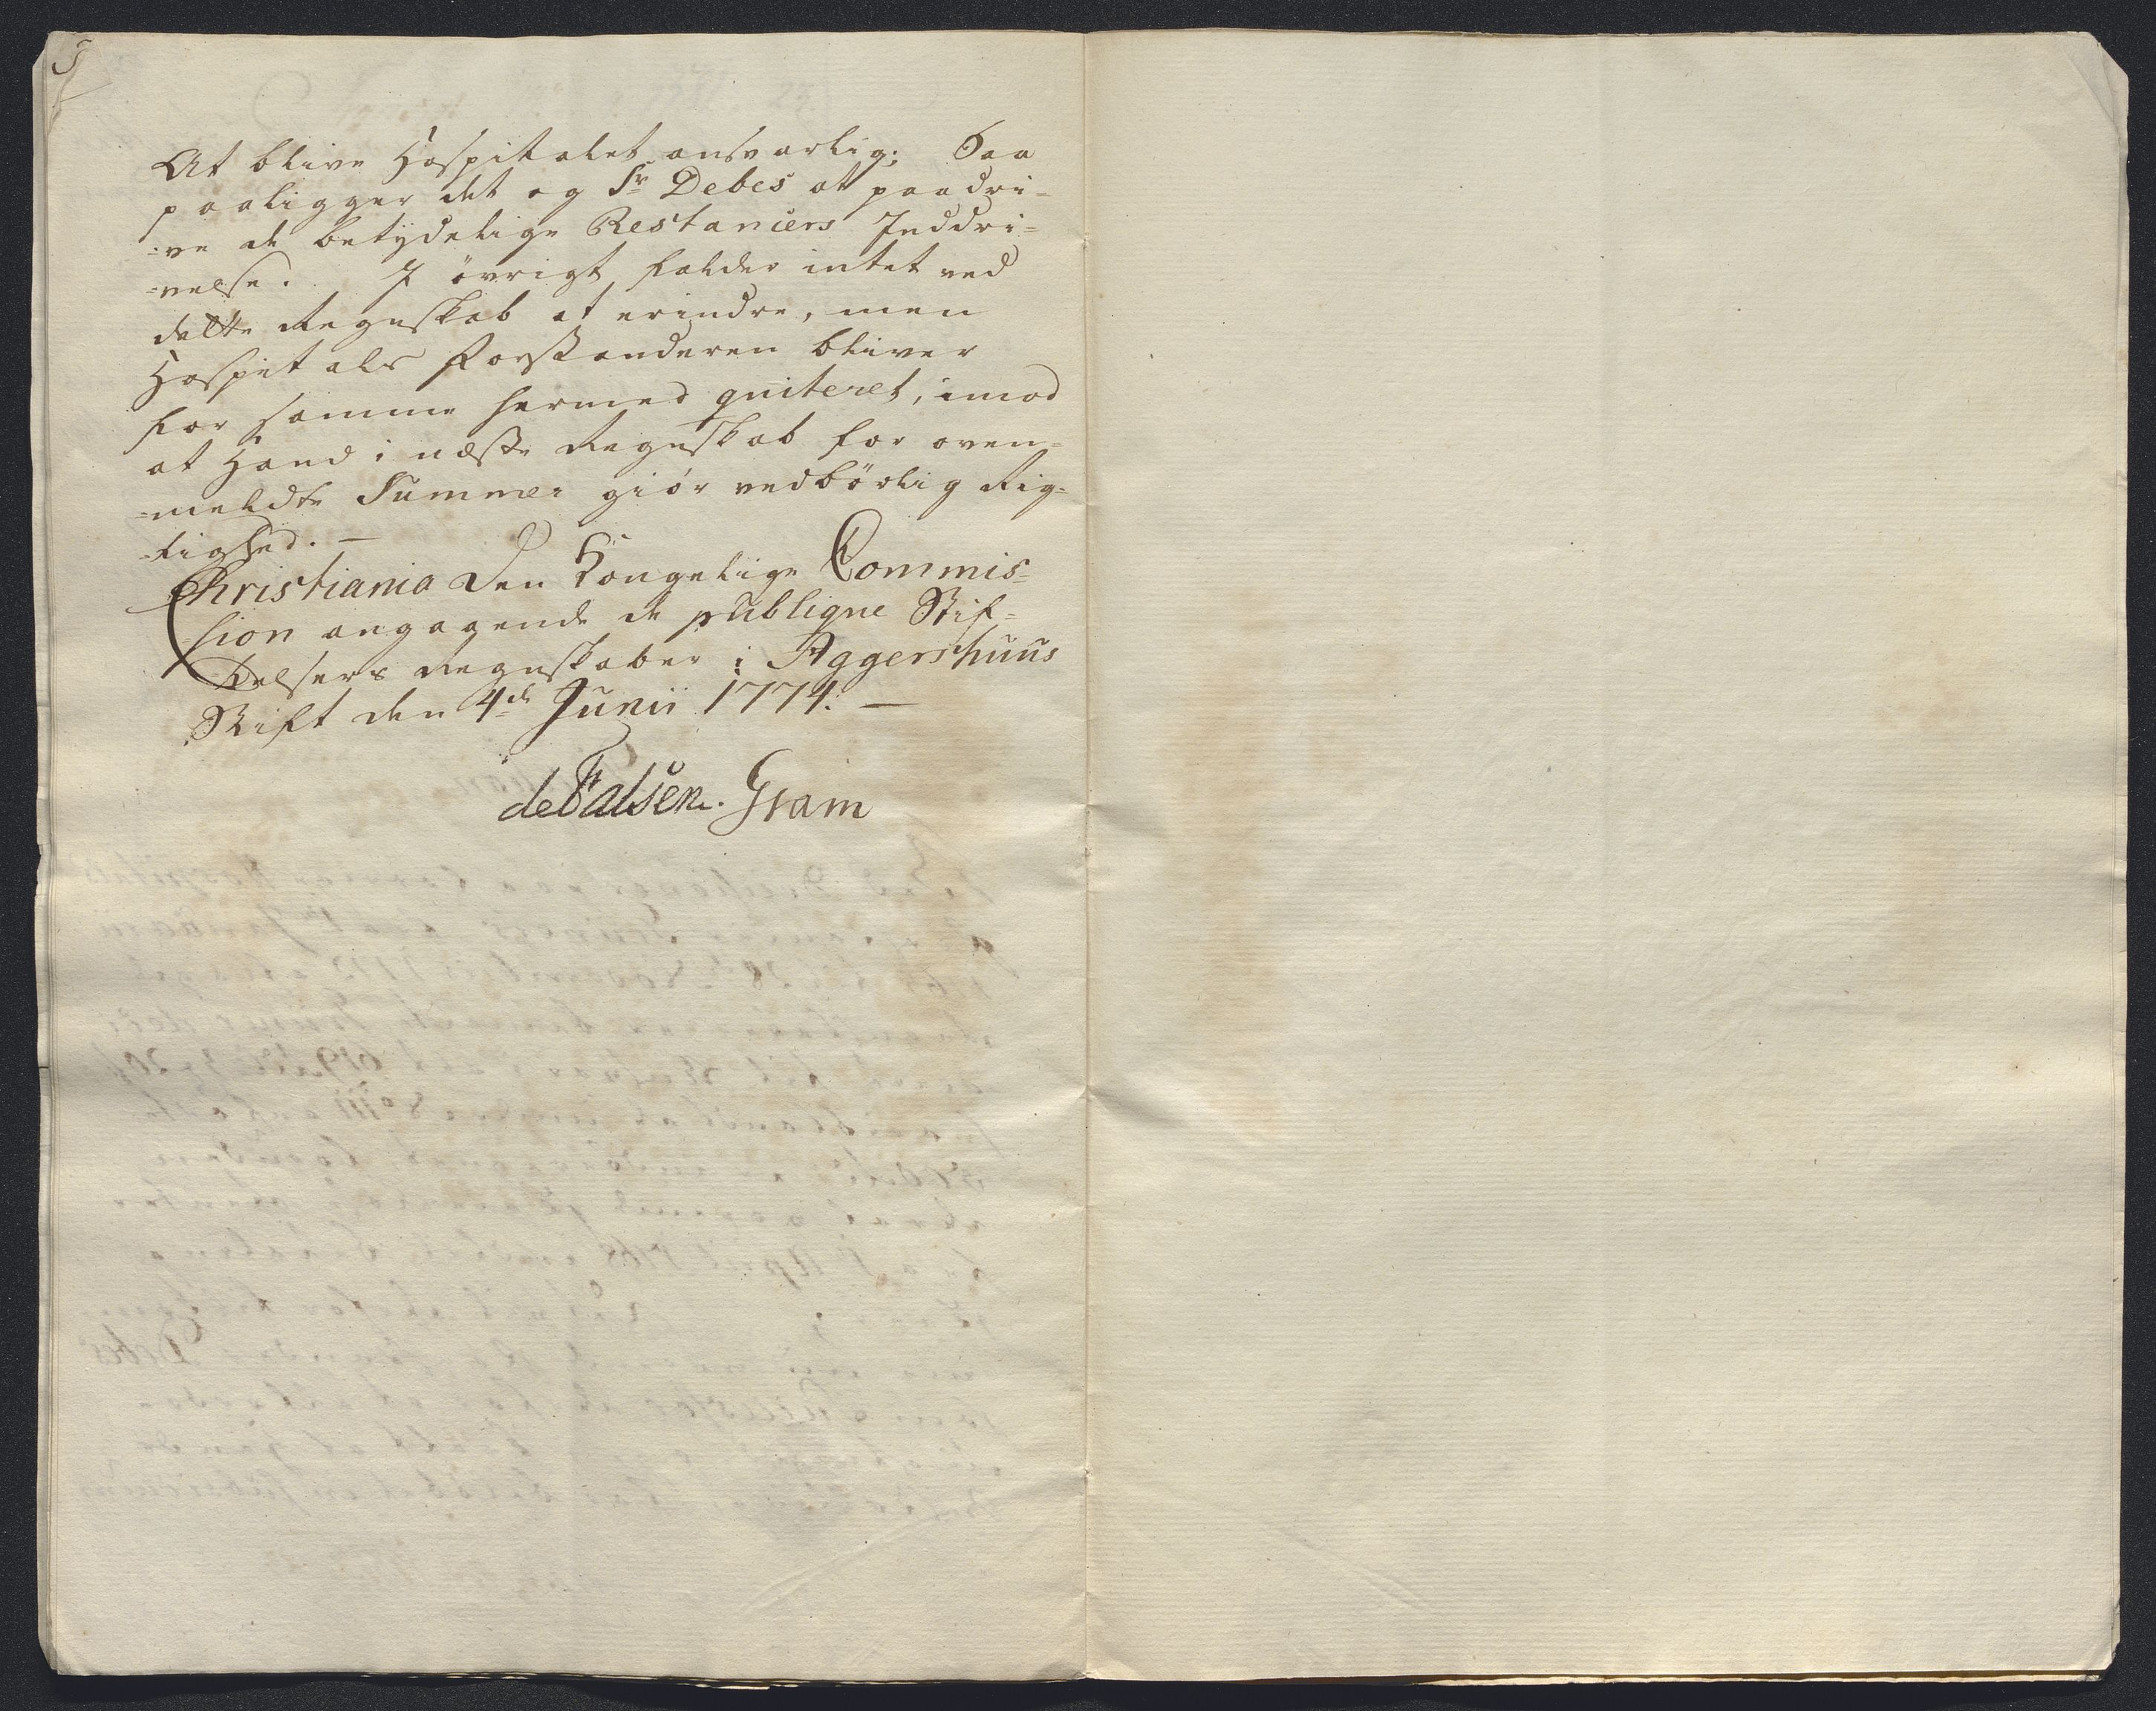 At blive Hospitalet ansvarlig; Saa
paaligger det og Sr Debes at paadri=
=ve de betydelige Restanciers Inddri=
=velse. I övrigt falder intet ved
dette Regnskab at erindre, men
Hospitals Forstanderen bliver
for samme hermed qviteret, imod
at Hand i næste Regnskab for oven=
=meldte Summer giör vedbörlig Rig=
=tighed. —
Christiania Den Kongelige Commis=
=sion angagende de publiqve Stif=
=telsers Regnskaber i Aggershuus
Stift den 4de Junii 1774. —
de Falsen. Gram